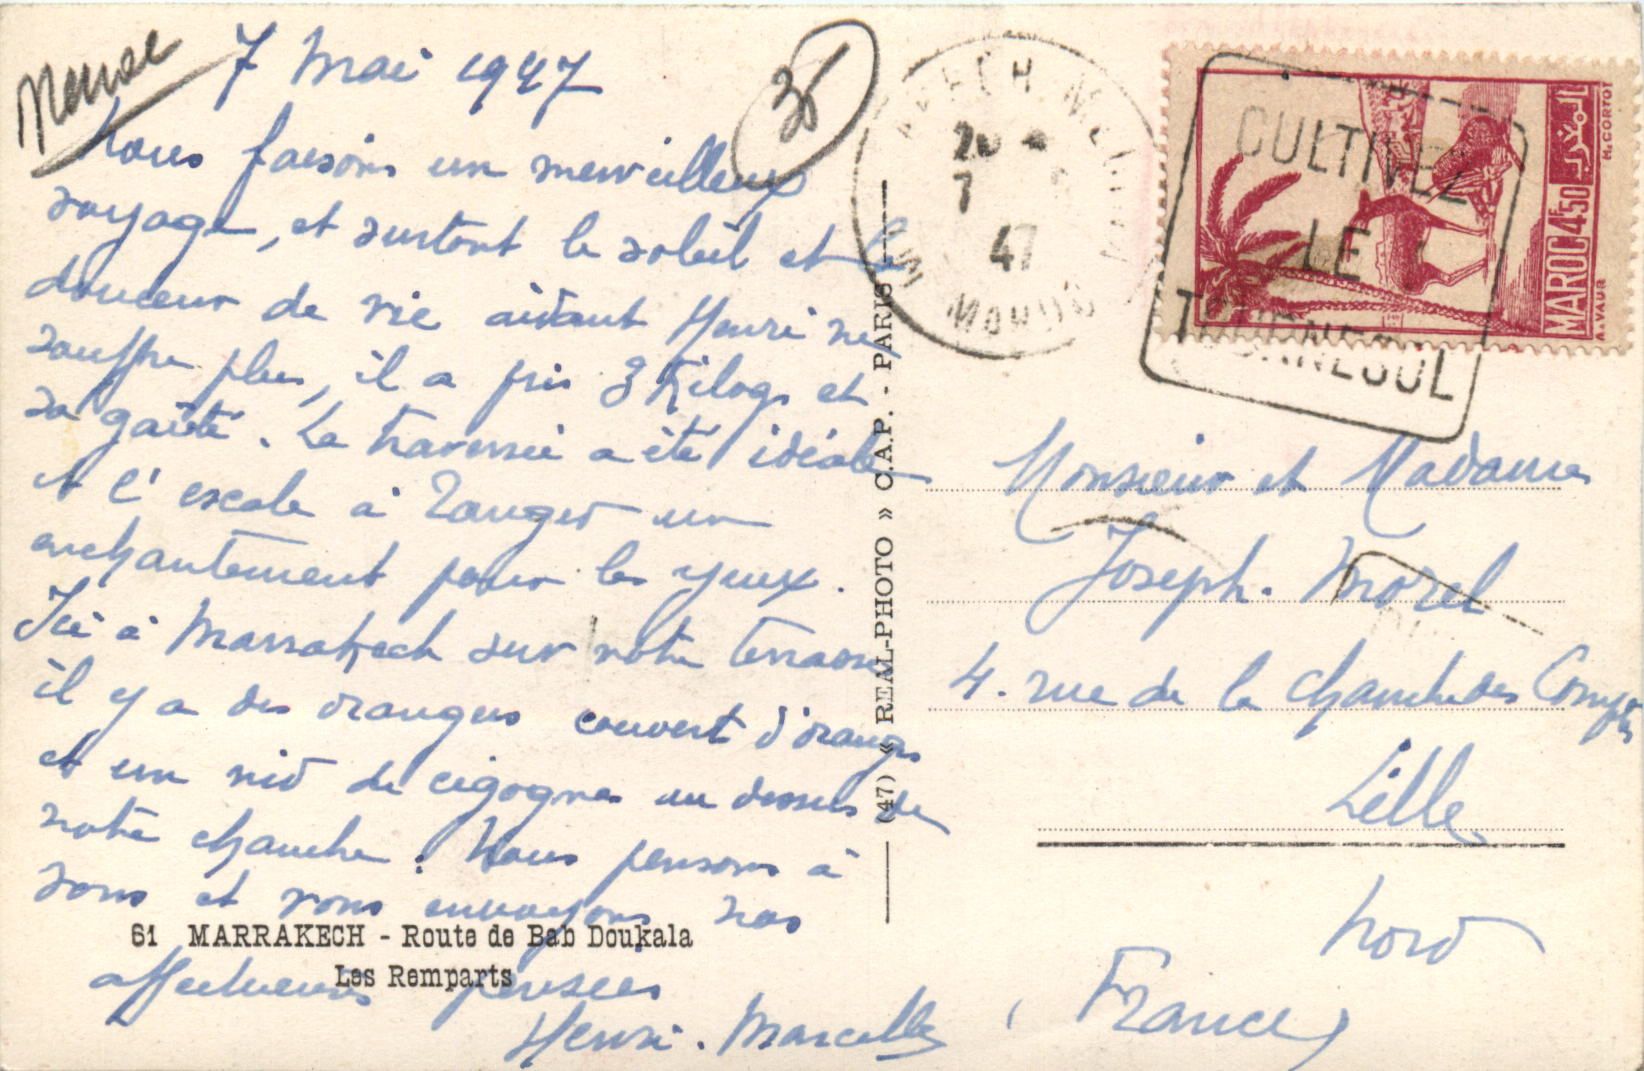 7 Mai 1947
Nous faisons un merveilleux
voyage, et surtout le soleil et la
douceur de vie aidant Henri ne
souffre plus, il a pris 3 Kilogs et
sa gaité. La traversée a été idéale
et l'escale à Tanger un
enchantement pour les yeux.
Ici à Marrakech sur notre terrasse
il y a des orangers couvert d'oranges
et un nid de cigognes au dessus de
notre chambre. Nous pensons à
vous et vous envoyons nos
affectueuses pensées
Henri. Marcelle
61 MARRAKECH - Route de Bab Doukala
Les Remparts
(47) « REAL-PHOTO » C.A.P. - PARIS
35
20
7
47
MAROC
CULTIVEZ
LE
TOURNESOL
MAROC 4F50
المغرب
H. CORTOT
A. VAUR
Monsieur et Madame
Joseph. Morel
4. rue de la chambre des Comptes
Lille
Nord
France